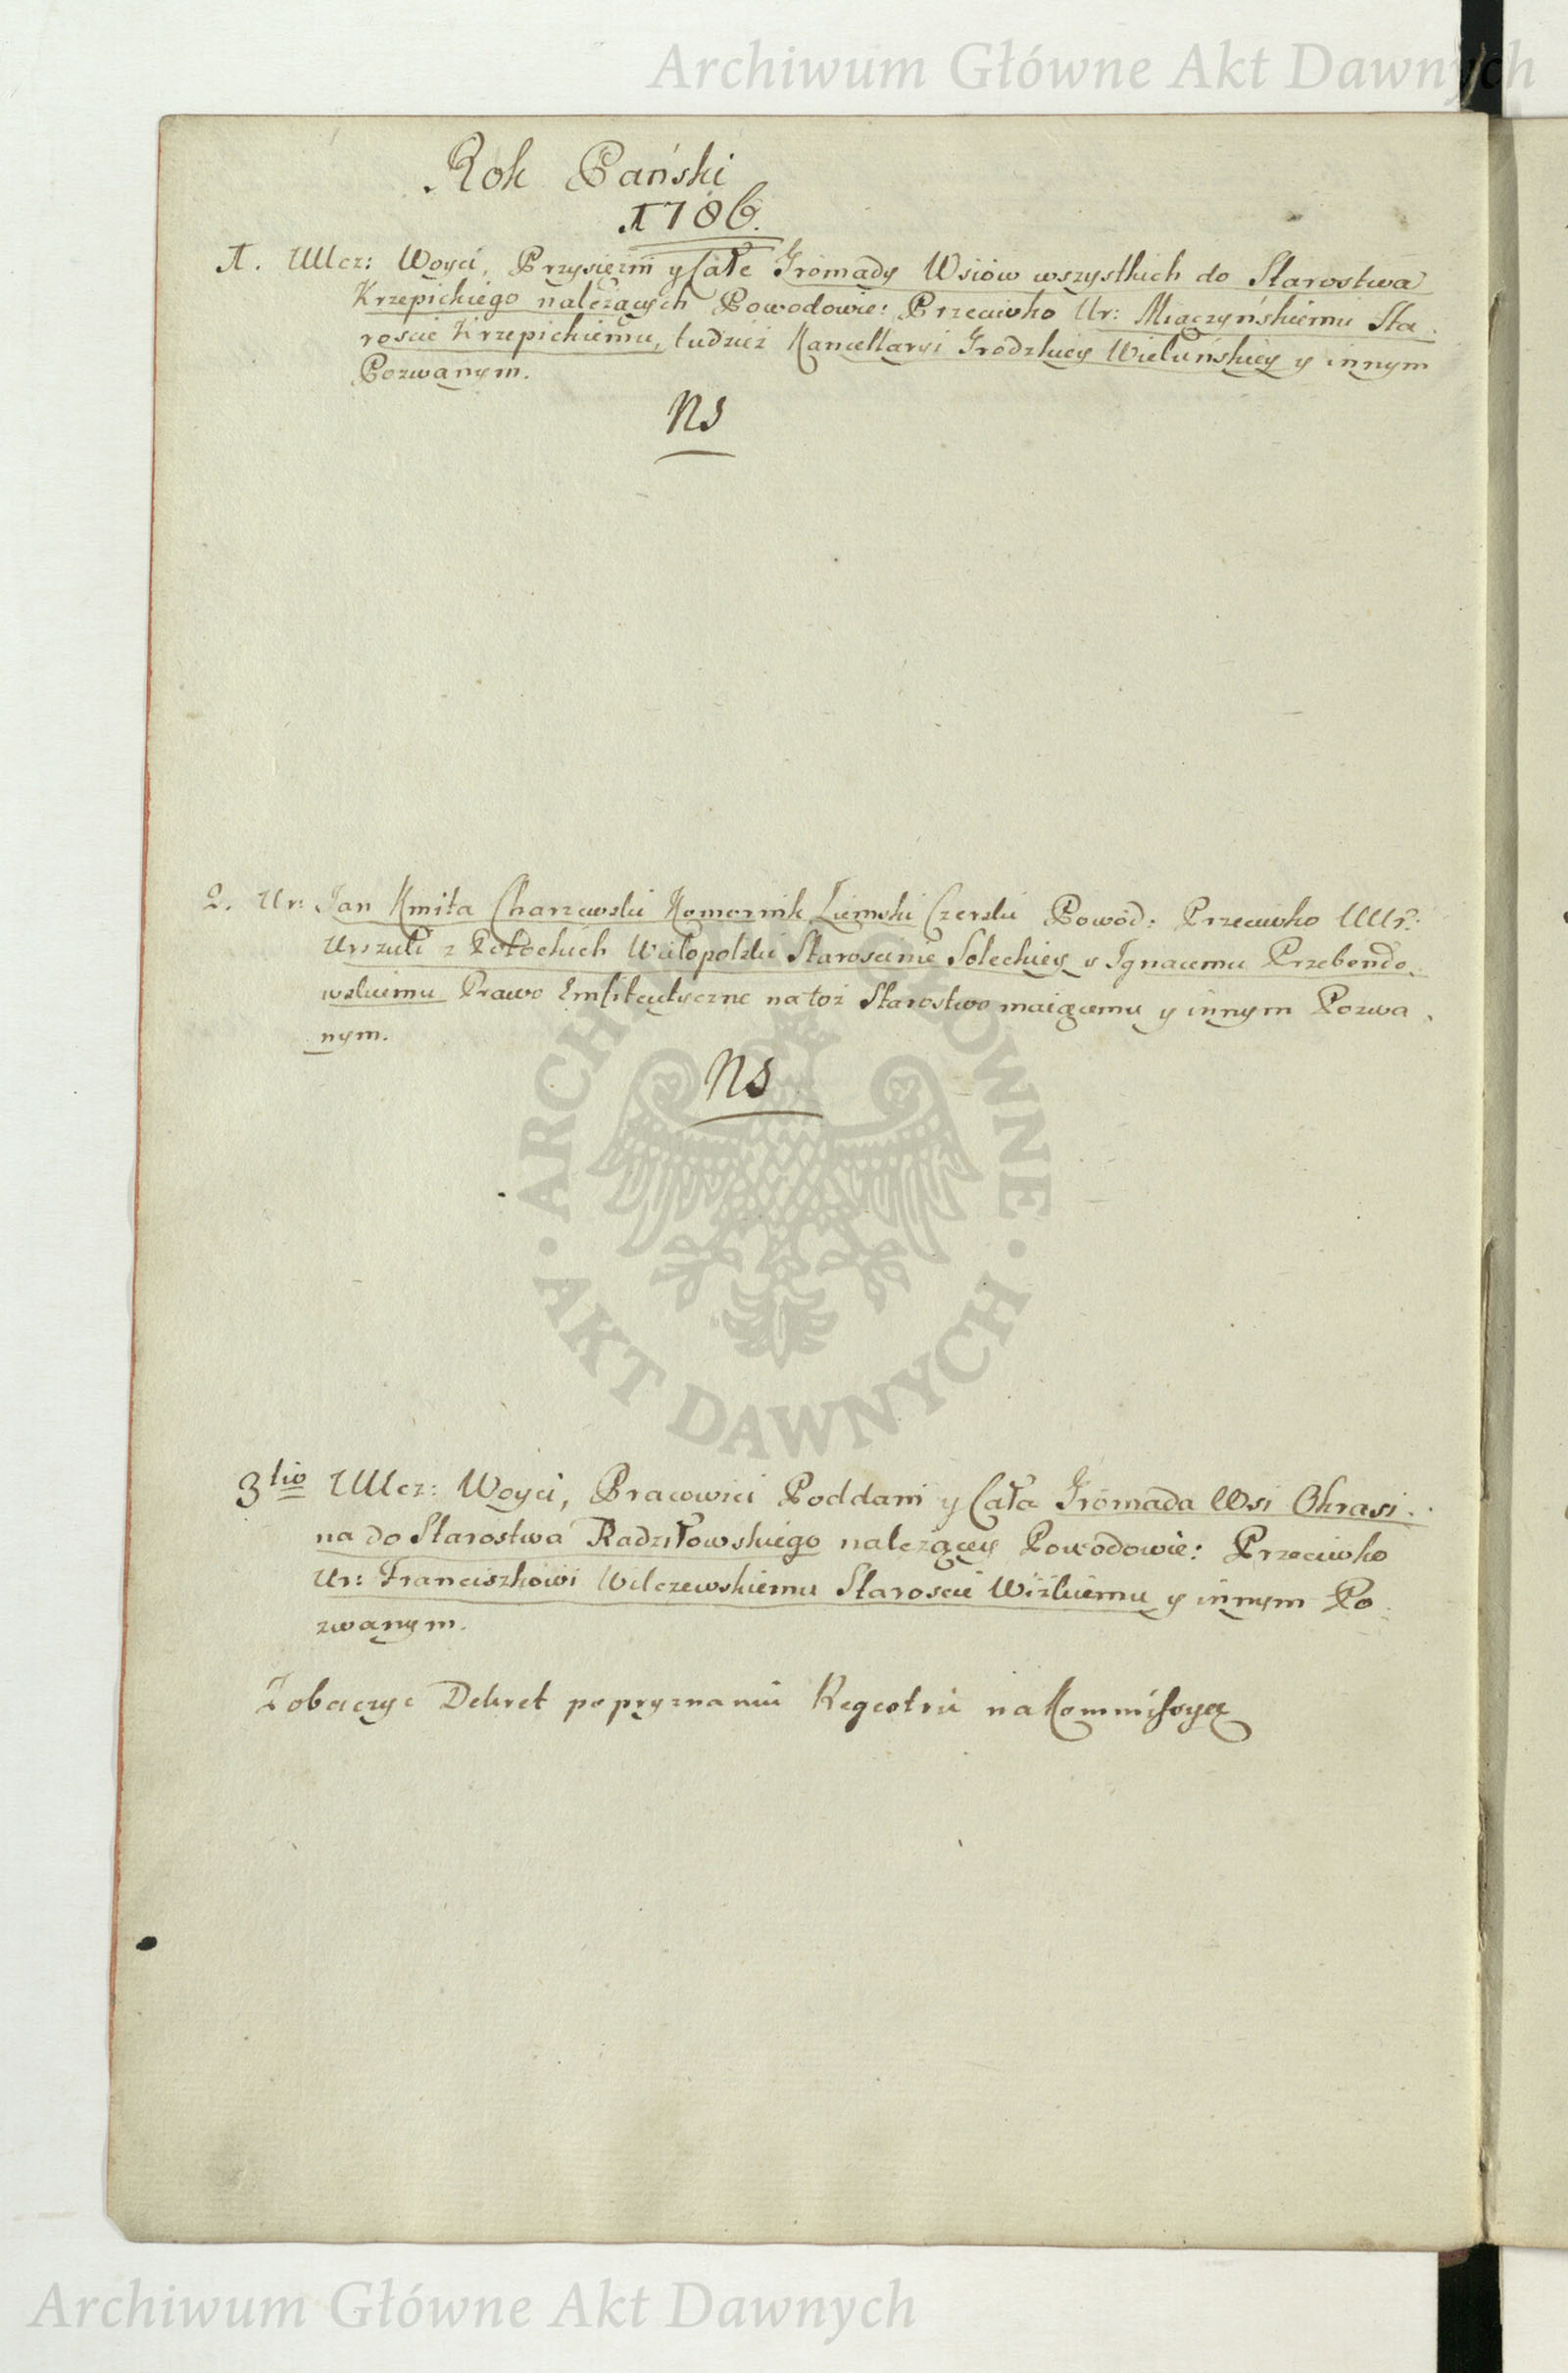 Archiwum Główne Akt Dawnych
Rok Pański
1786.
1. UUcz: Woyci, Przysięzni y Całe Gromady Wsiów wszystkich do Starostwa
Krzepickiego należących Powodowie: Przeciwko Ur: Miączyńskiemu Sta-
roście Krzepickiemu, tudzież Kancellaryi Grodzkiey Wieluńskiey y innym
Pozwanym.
NS
2. Ur: Jan Kmita Charzewski Komornik Ziemski Czerski Powód: Przeciwko UUr:
Urszuli z Potockich Wielopolski Starościnie Soleckiey y Ignacemu Przebendo-
wskiemu Prawo Emfiteutyczne na toż Starostwo maiącemu y innym Pozwa-
nym.
NS
ARCHIWUM GŁÓWNE · AKT DAWNYCH ·
3tio UUcz: Woyci, Pracowici Poddani y Cała Gromada Wsi Okrasi-
na do Starostwa Radziłowskiego należącey Powodowie: Przeciwko
Ur: Franciszkowi Wilczewskiemu Staroscie Wizkiemu y innym Po-
zwanym.
Zobaczyć Dekret po pryznaniu Regestru na Kommissyą
Archiwum Główne Akt Dawnych